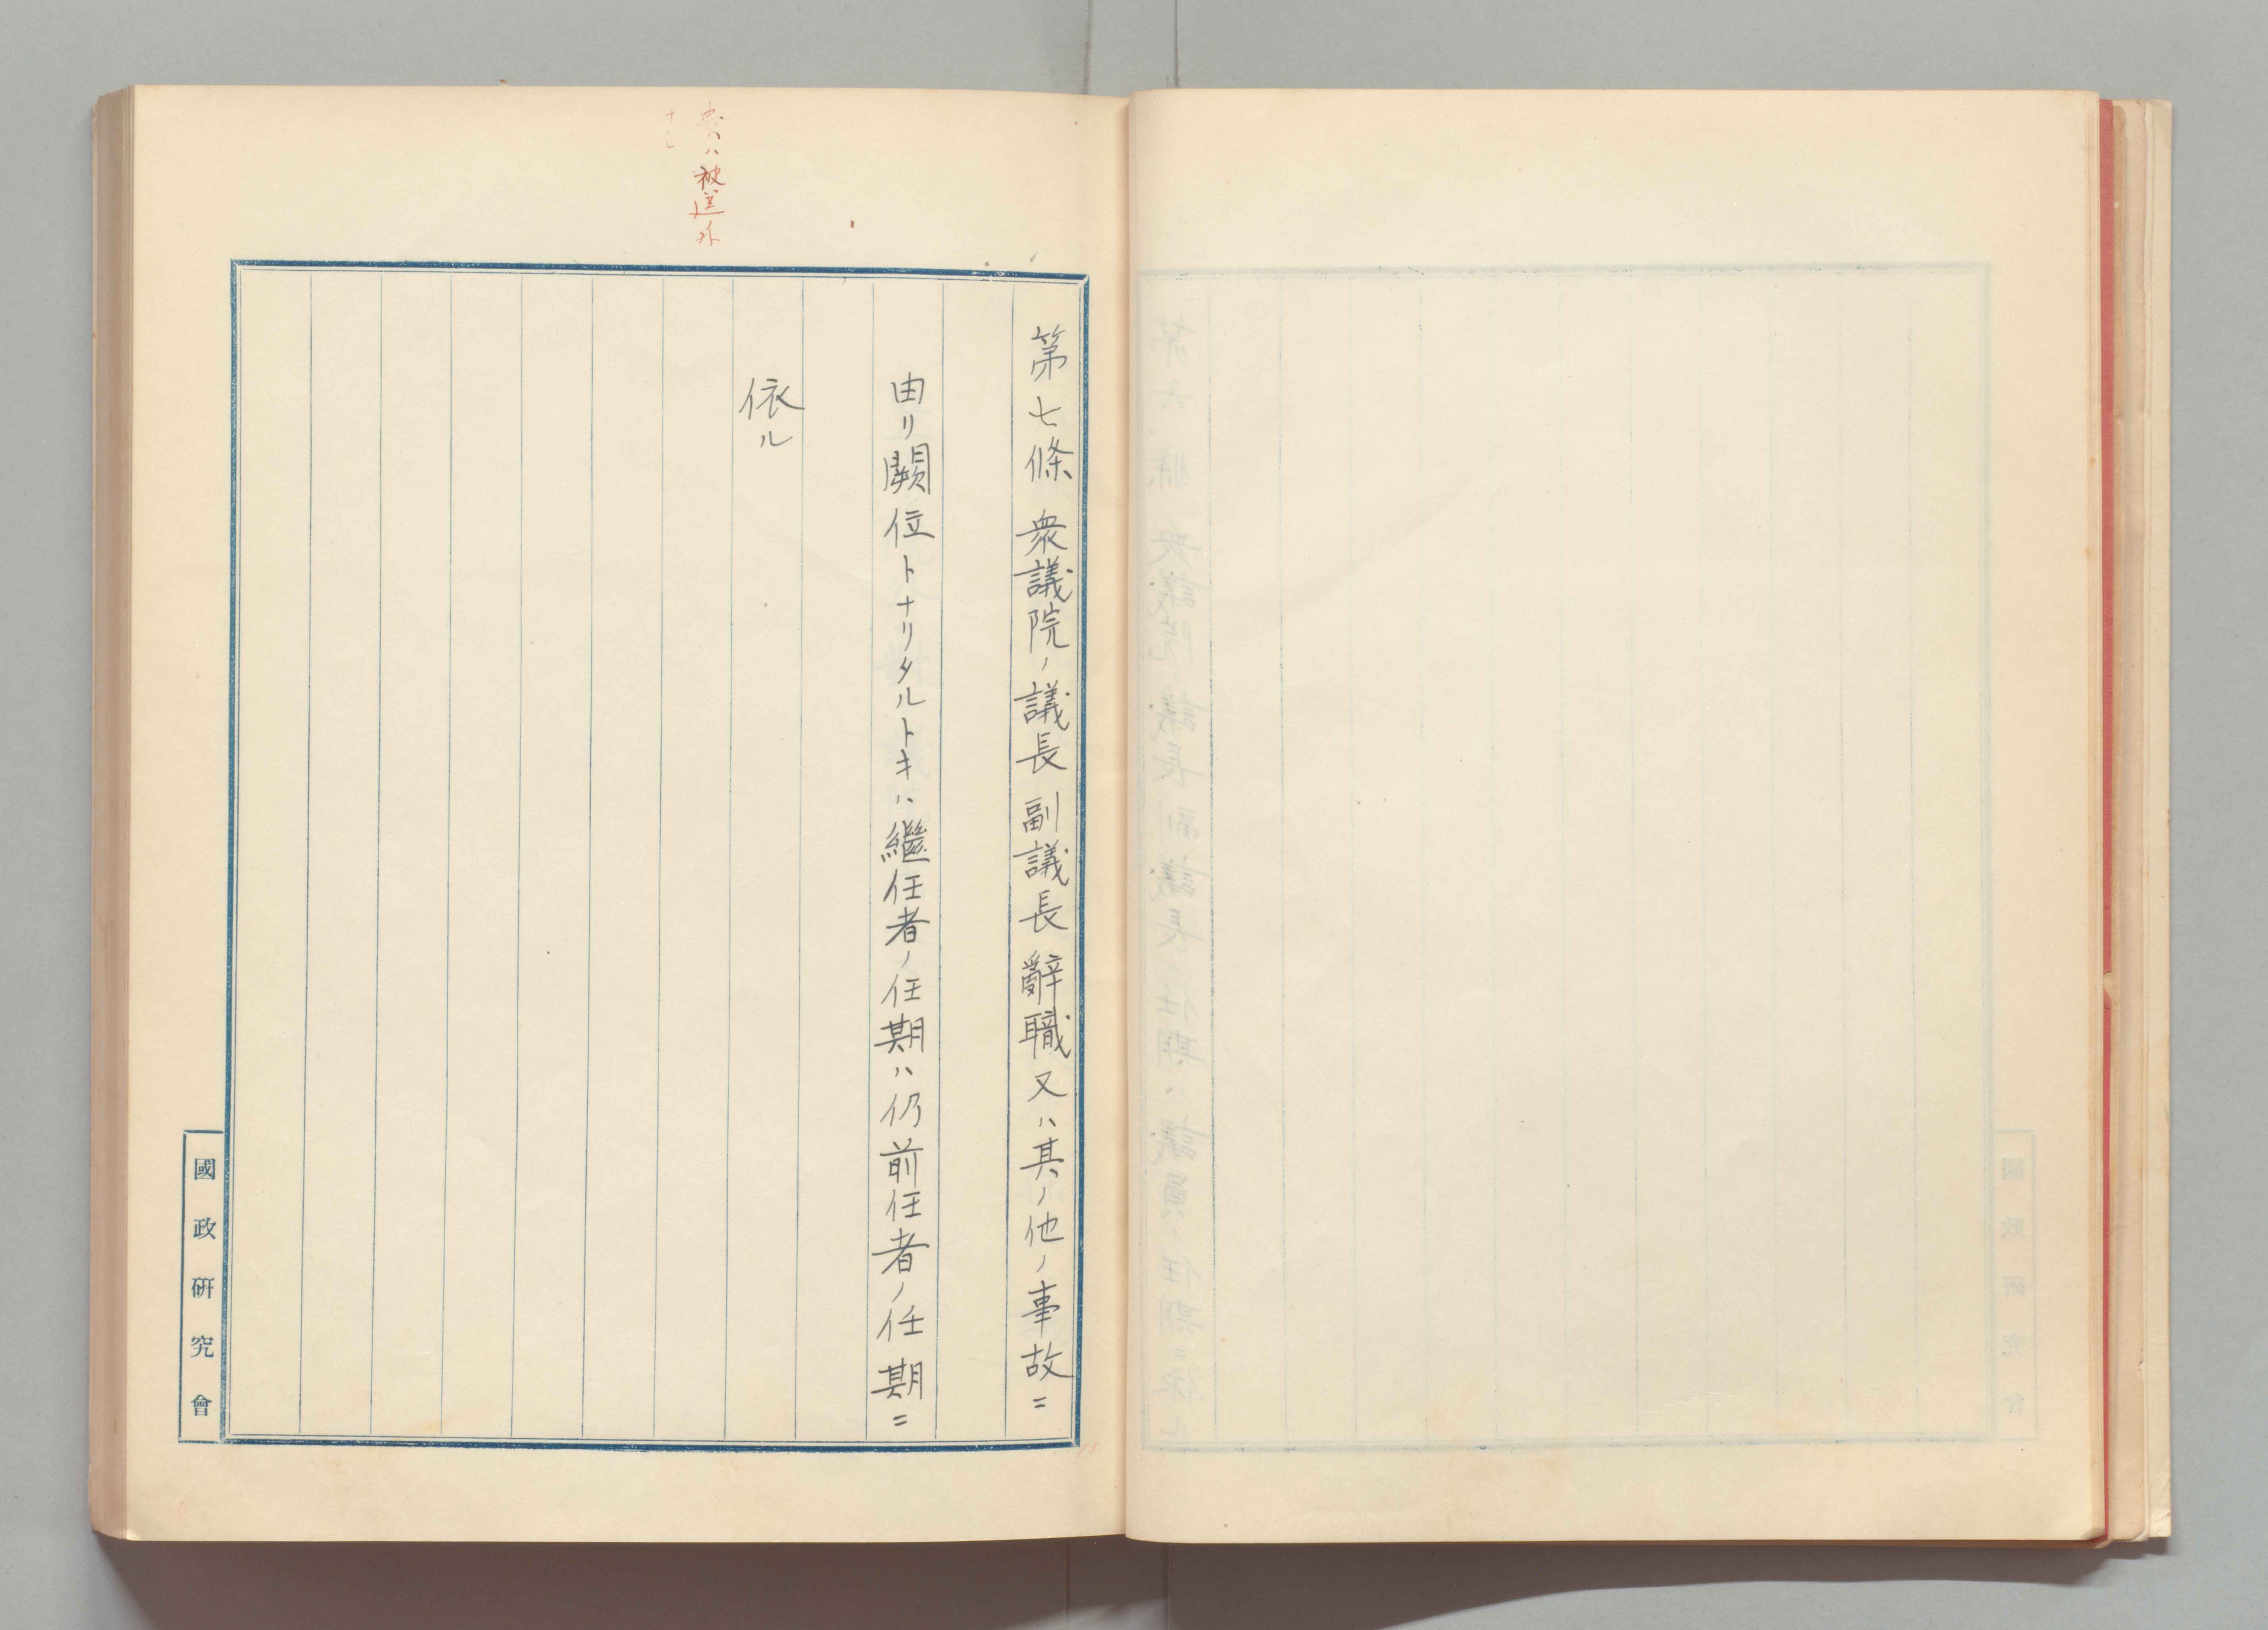 第七條 衆議院ノ議長副議長辭職又ハ其ノ他ノ事故ニ
由リ闕位トナリタルトキハ繼任者ノ任期ハ仍前任者ノ任期ニ
依ル
ハ被選外
國政研究會